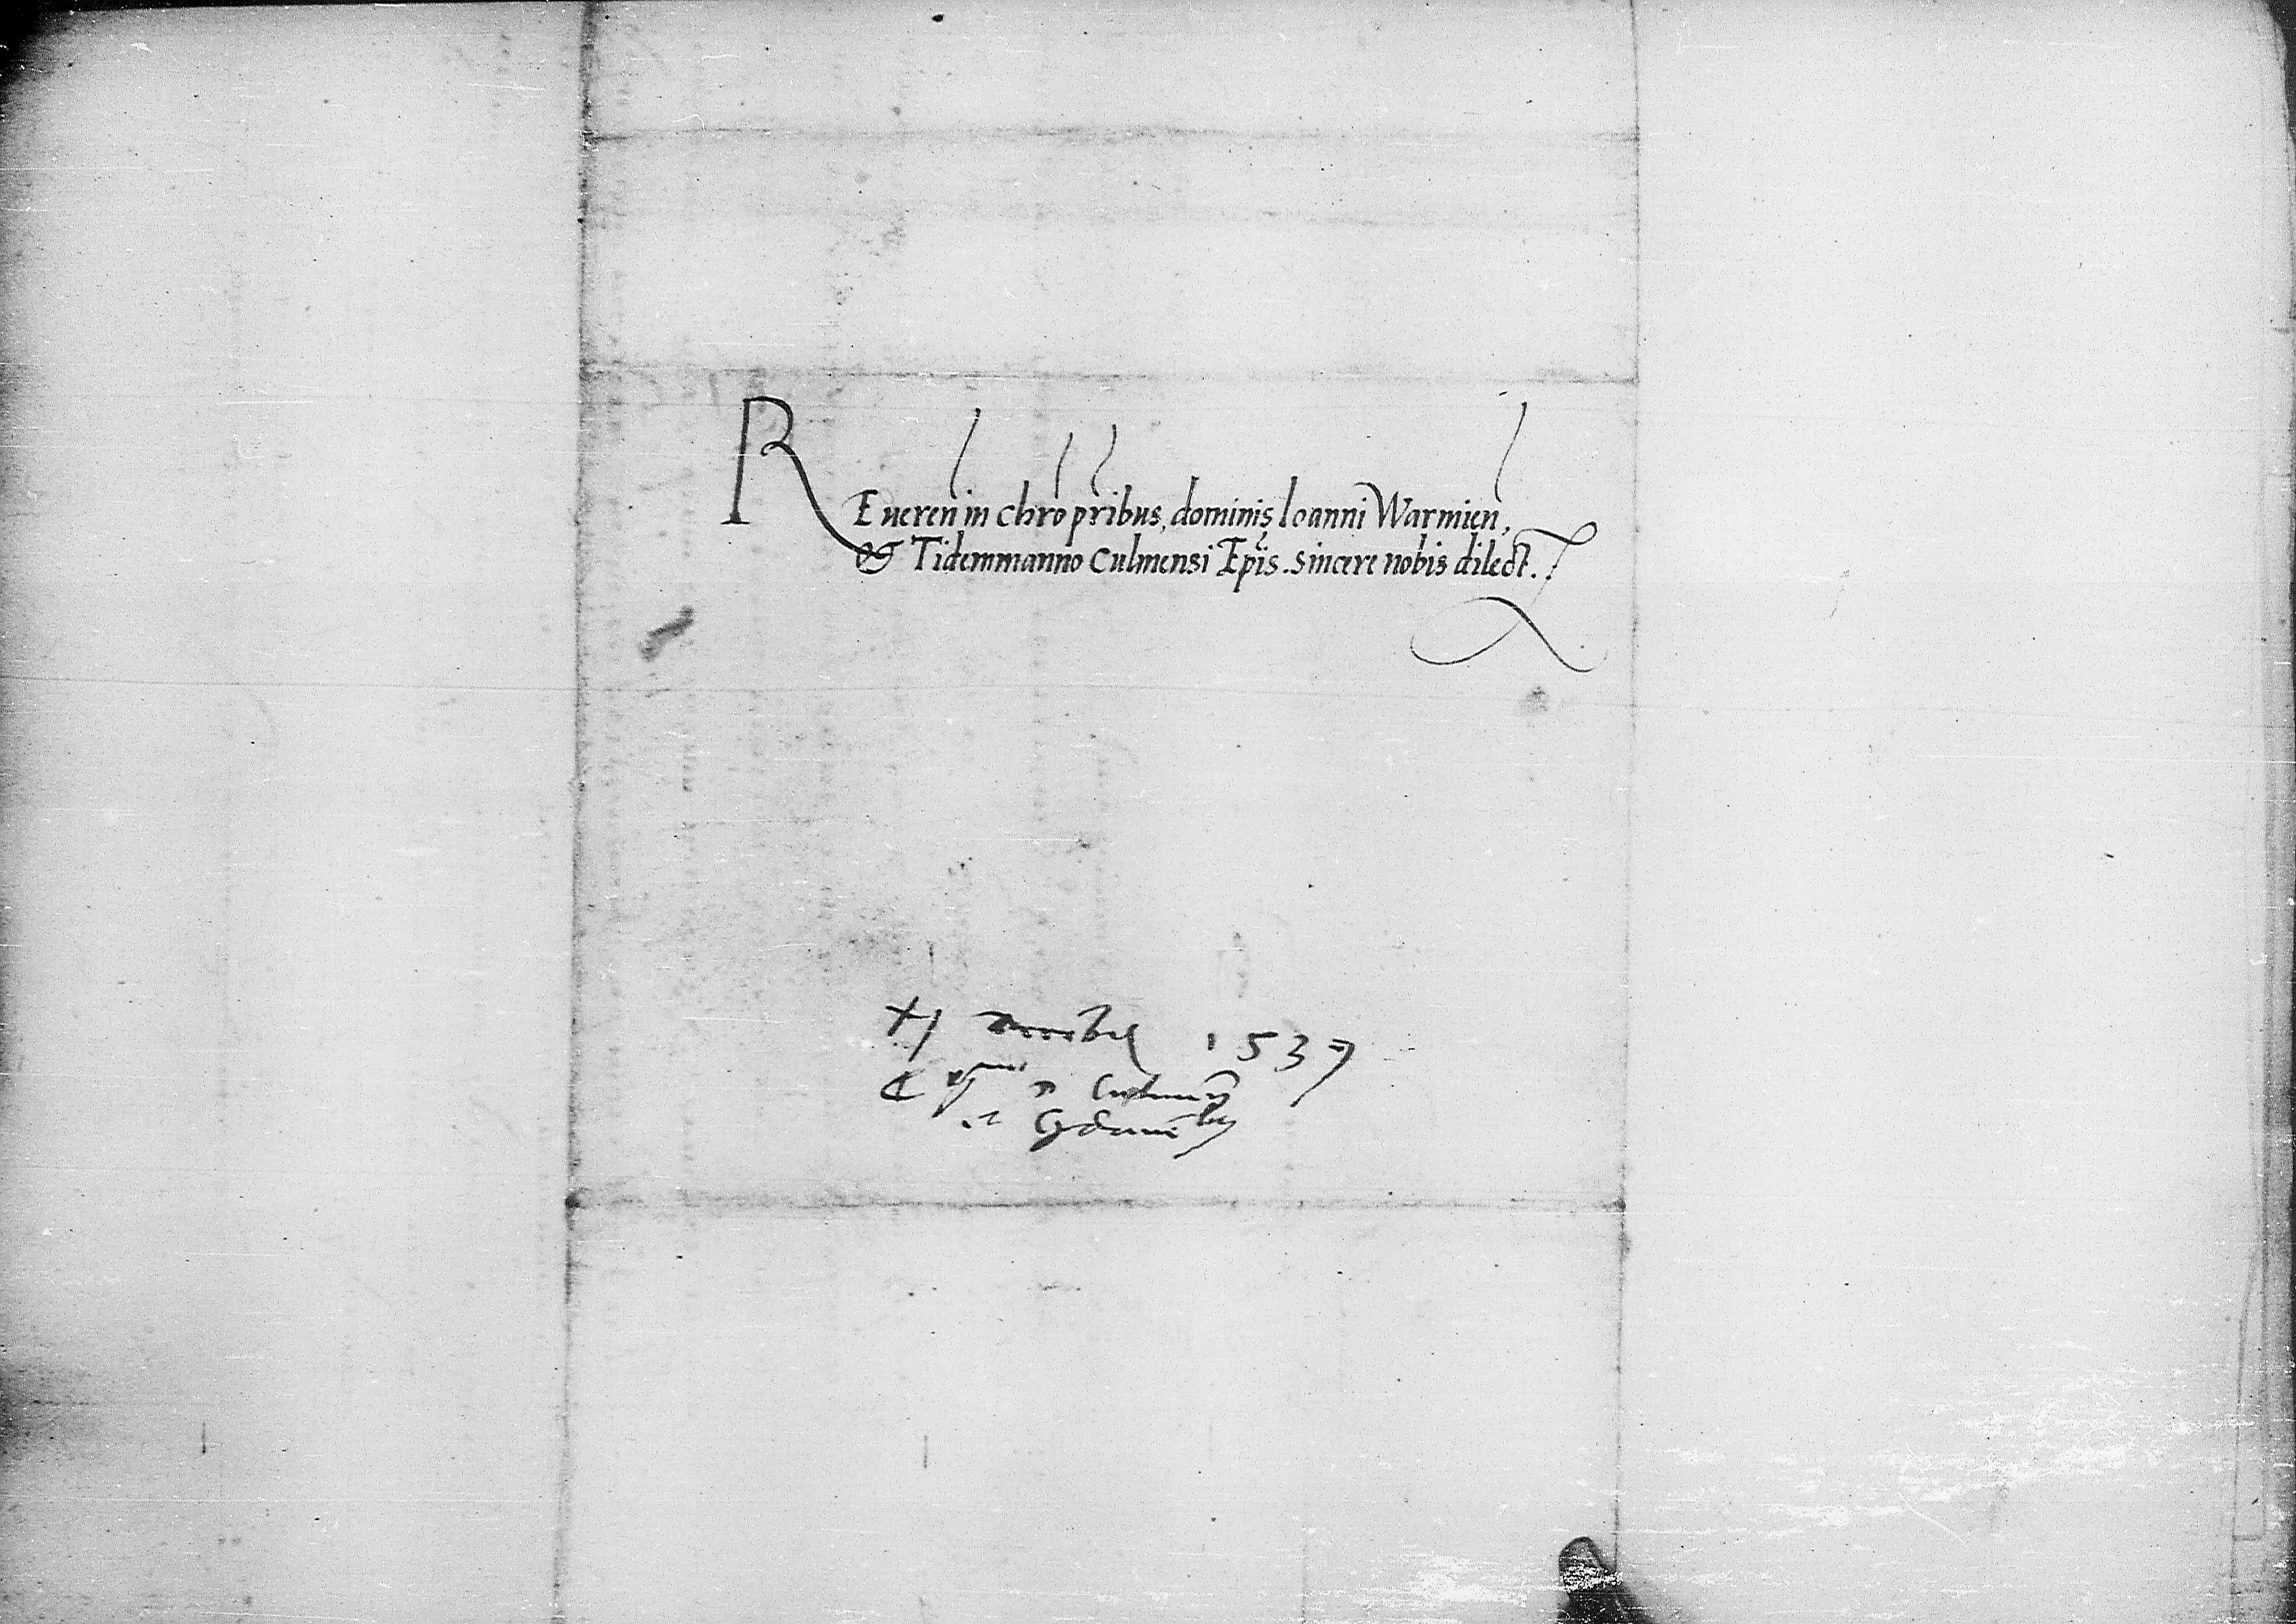 REueren in chro pribus, dominis Ioanni Warmien,
& Tidemmanno Culmensi Epis. sincere nobis dilect.
XI 1537
Culmen
Gdanen